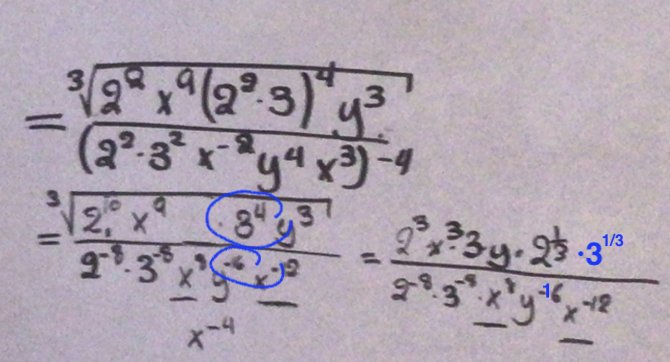 = ∛(2² x⁹ (2²·3)⁴ y³) / (2²·3² x⁻² y⁴ x³)⁻⁴
= ∛(2¹⁰ x⁹ · 3⁴ y³) / 2⁻⁸·3⁻⁸ x⁸ y⁻¹⁶ x⁻¹² = 2³ x³·3y·2^(1/3) ·3^(1/3) / 2⁻⁸·3⁻⁸·x⁸ y⁻¹⁶ x⁻¹²
x⁻⁴